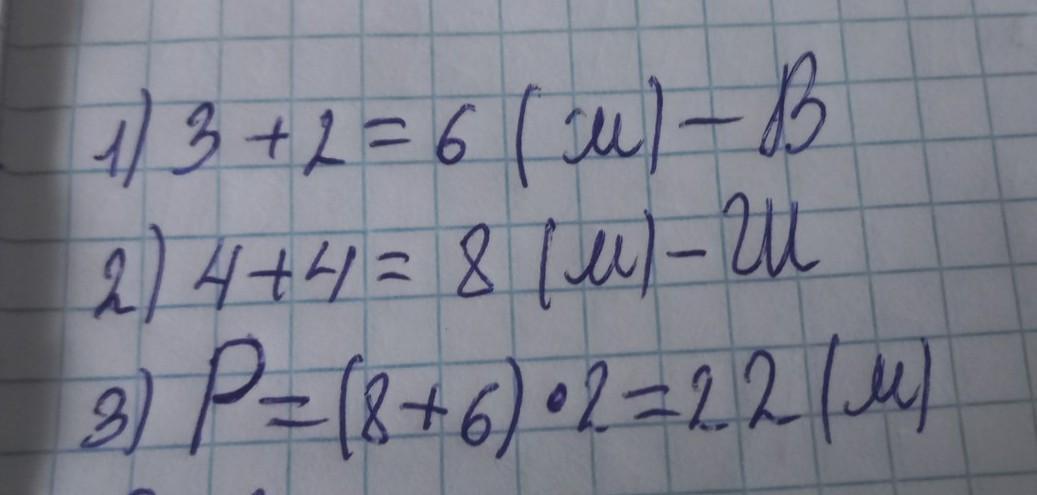 1) 3 + 2 = 6 (м) - В
2) 4 + 4 = 8 (м) - Ш
3) P = (8 + 6) • 2 = 22 (м)